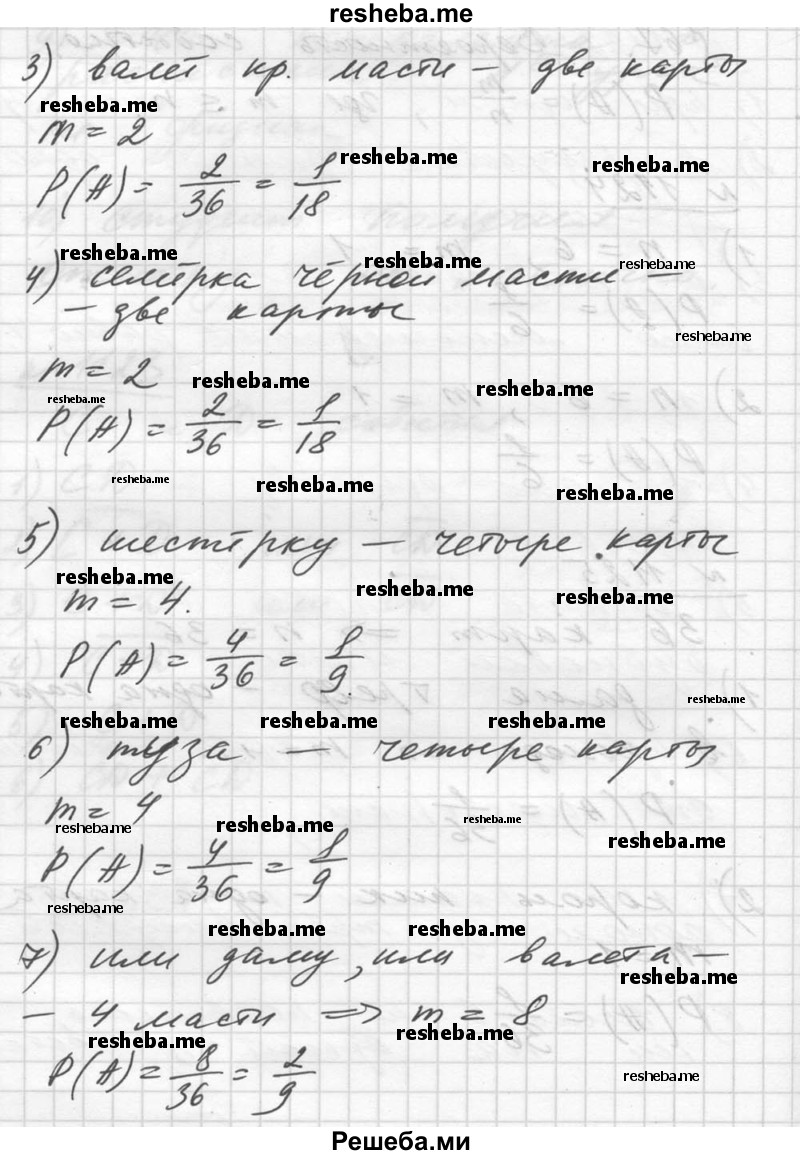 resheba.me
3) валет кр. масти – две карты
resheba.me
m = 2
resheba.me resheba.me
P(A) = 2/36 = 1/18
resheba.me resheba.me resheba.me
4) семёрка чёрной масти –
– две карты
resheba.me
m = 2 resheba.me resheba.me
resheba.me
P(A) = 2/36 = 1/18
resheba.me resheba.me resheba.me
5) шестёрку – четыре карты
resheba.me resheba.me resheba.me
m = 4.
P(A) = 4/36 = 1/9.
resheba.me
resheba.me resheba.me resheba.me
6) туза – четыре карты
m = 4
resheba.me resheba.me resheba.me resheba.me
P(A) = 4/36 = 1/9
resheba.me
resheba.me resheba.me
7) или даму, или валета –
resheba.me
– 4 масти => m = 8
resheba.me resheba.me
P(A) = 8/36 = 2/9
resheba.me
Решеба.ми